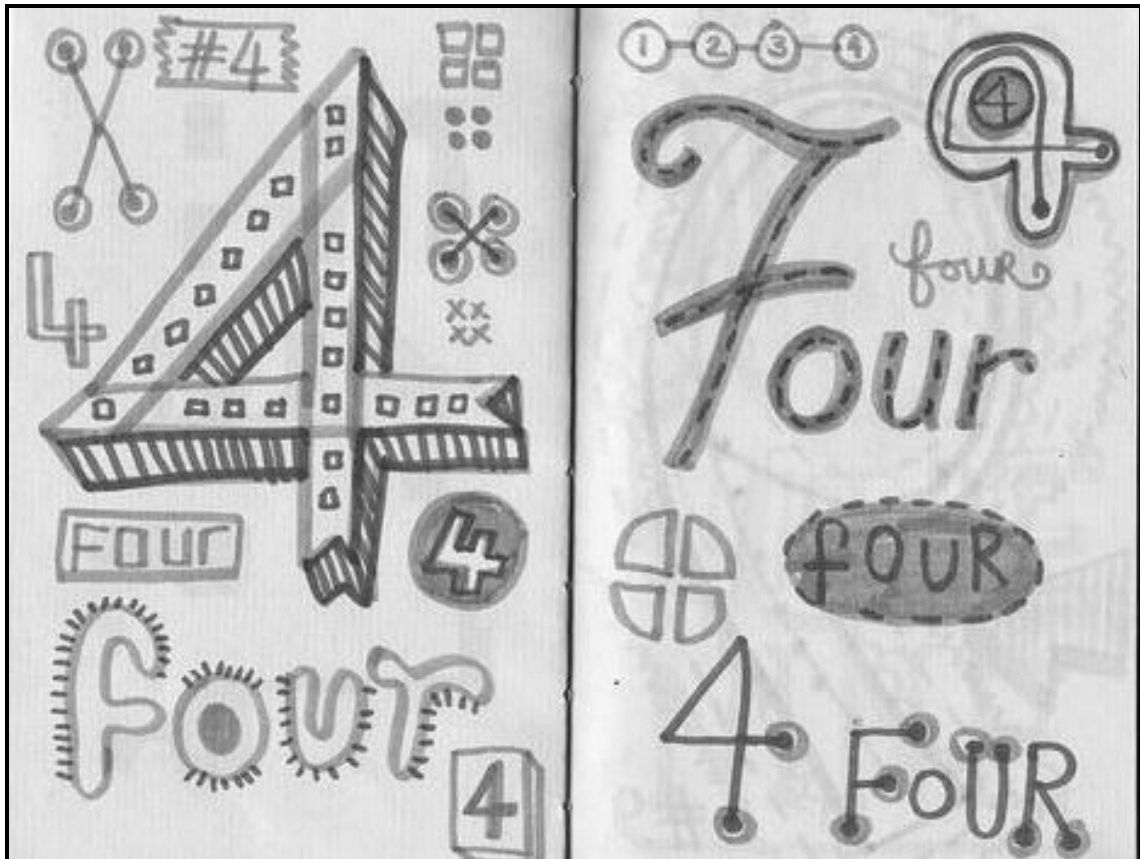 #4
4
4
FOUR
4
four
4
1 2 3 4
4
4
Four
four
fOUR
4
FOUR